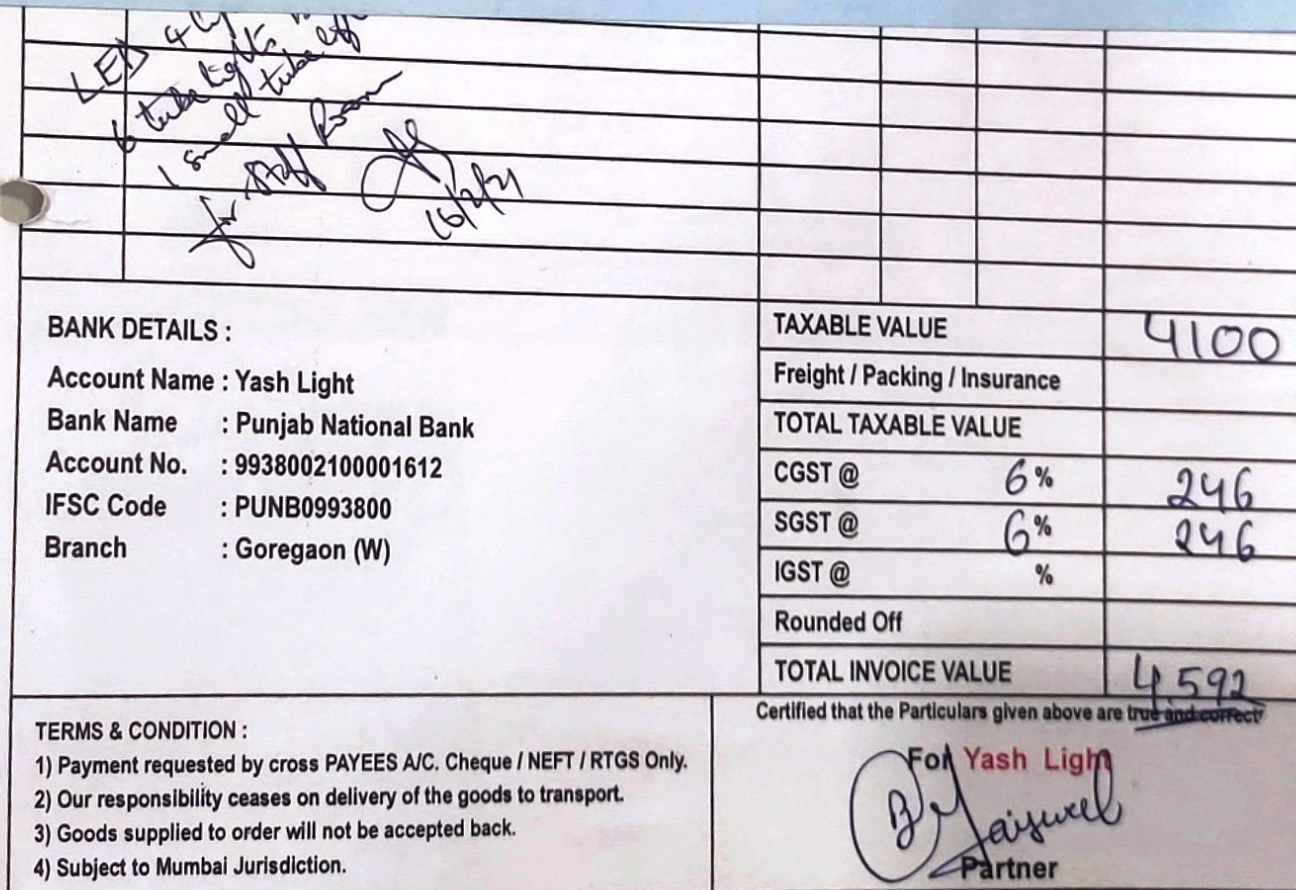 LED 4
6 tube lights
1 small tube
for Staff Room
16/2/21
BANK DETAILS :
Account Name : Yash Light
Bank Name : Punjab National Bank
Account No. : 9938002100001612
IFSC Code : PUNB0993800
Branch : Goregaon (W)
TAXABLE VALUE 4100
Freight / Packing / Insurance
TOTAL TAXABLE VALUE
CGST @ 6 % 246
SGST @ 6 % 246
IGST @ %
Rounded Off
TOTAL INVOICE VALUE 4592
TERMS & CONDITION :
1) Payment requested by cross PAYEES A/C. Cheque / NEFT / RTGS Only.
2) Our responsibility ceases on delivery of the goods to transport.
3) Goods supplied to order will not be accepted back.
4) Subject to Mumbai Jurisdiction.
Certified that the Particulars given above are true and correct
For Yash Light
Partner